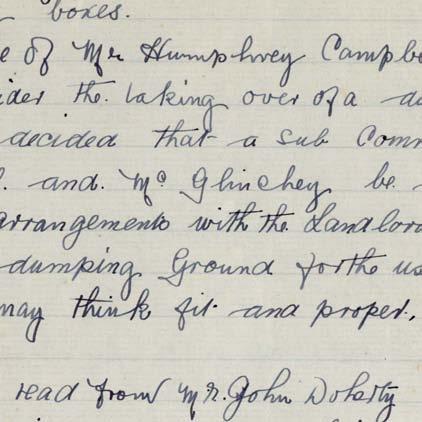 boxes.
e of Mr Humphrey Campbe
ider the taking over of a du
decided that a sub Comm
and. Mc Glinchey be
arrangements with the Landlord
dumping Ground for the us
may think fit and proper.
read from Mr. John Doherty